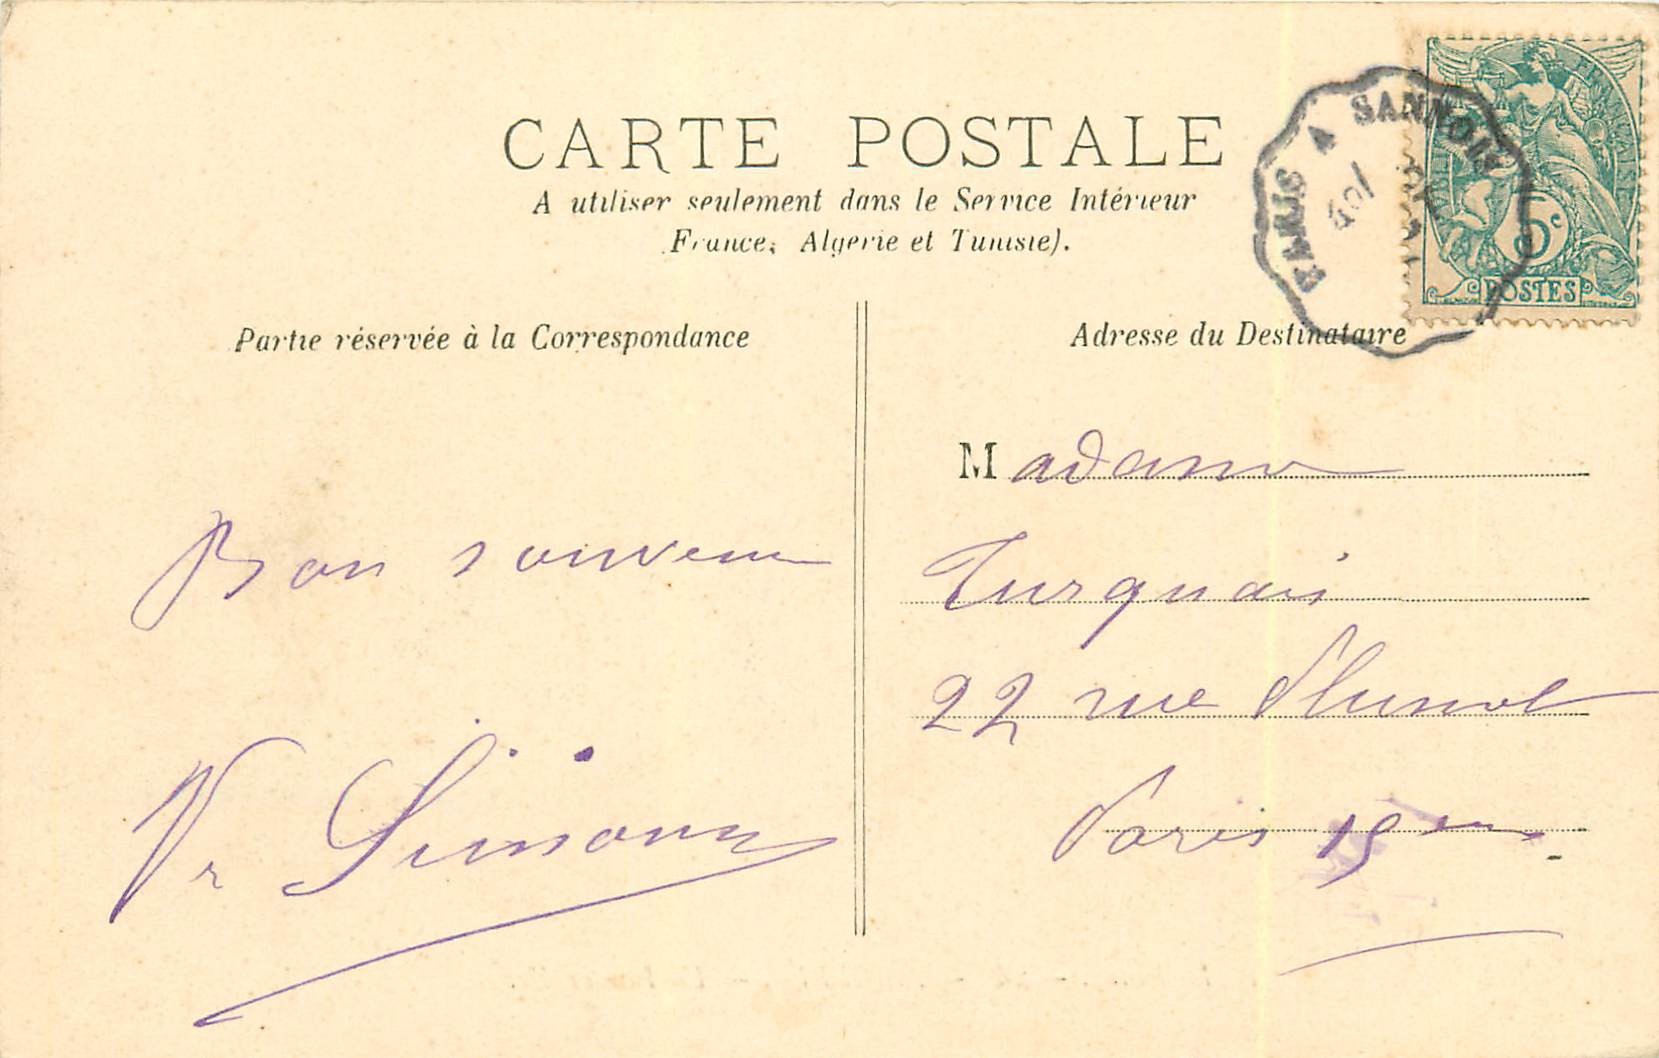 CARTE POSTALE
A utiliser seulement dans le Service Intérieur
France, Algérie et Tunisie).
Partie réservée à la Correspondance
Adresse du Destinataire
PARIS A SANNOIS
FRANÇAISE
5c
POSTES
Bon souvenir
Vr Simonn
Madame
Turquais
22 rue Plumet
Paris 15eme.